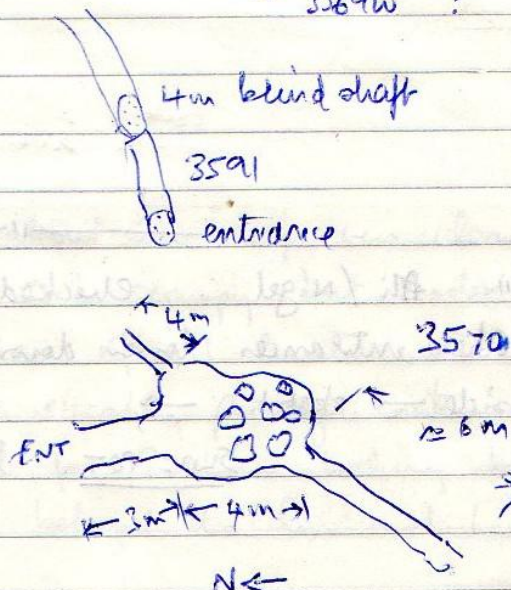 4m blind shaft
3591
entrance
4m
3570
≈ 6m
ENT
3m 4m
N←